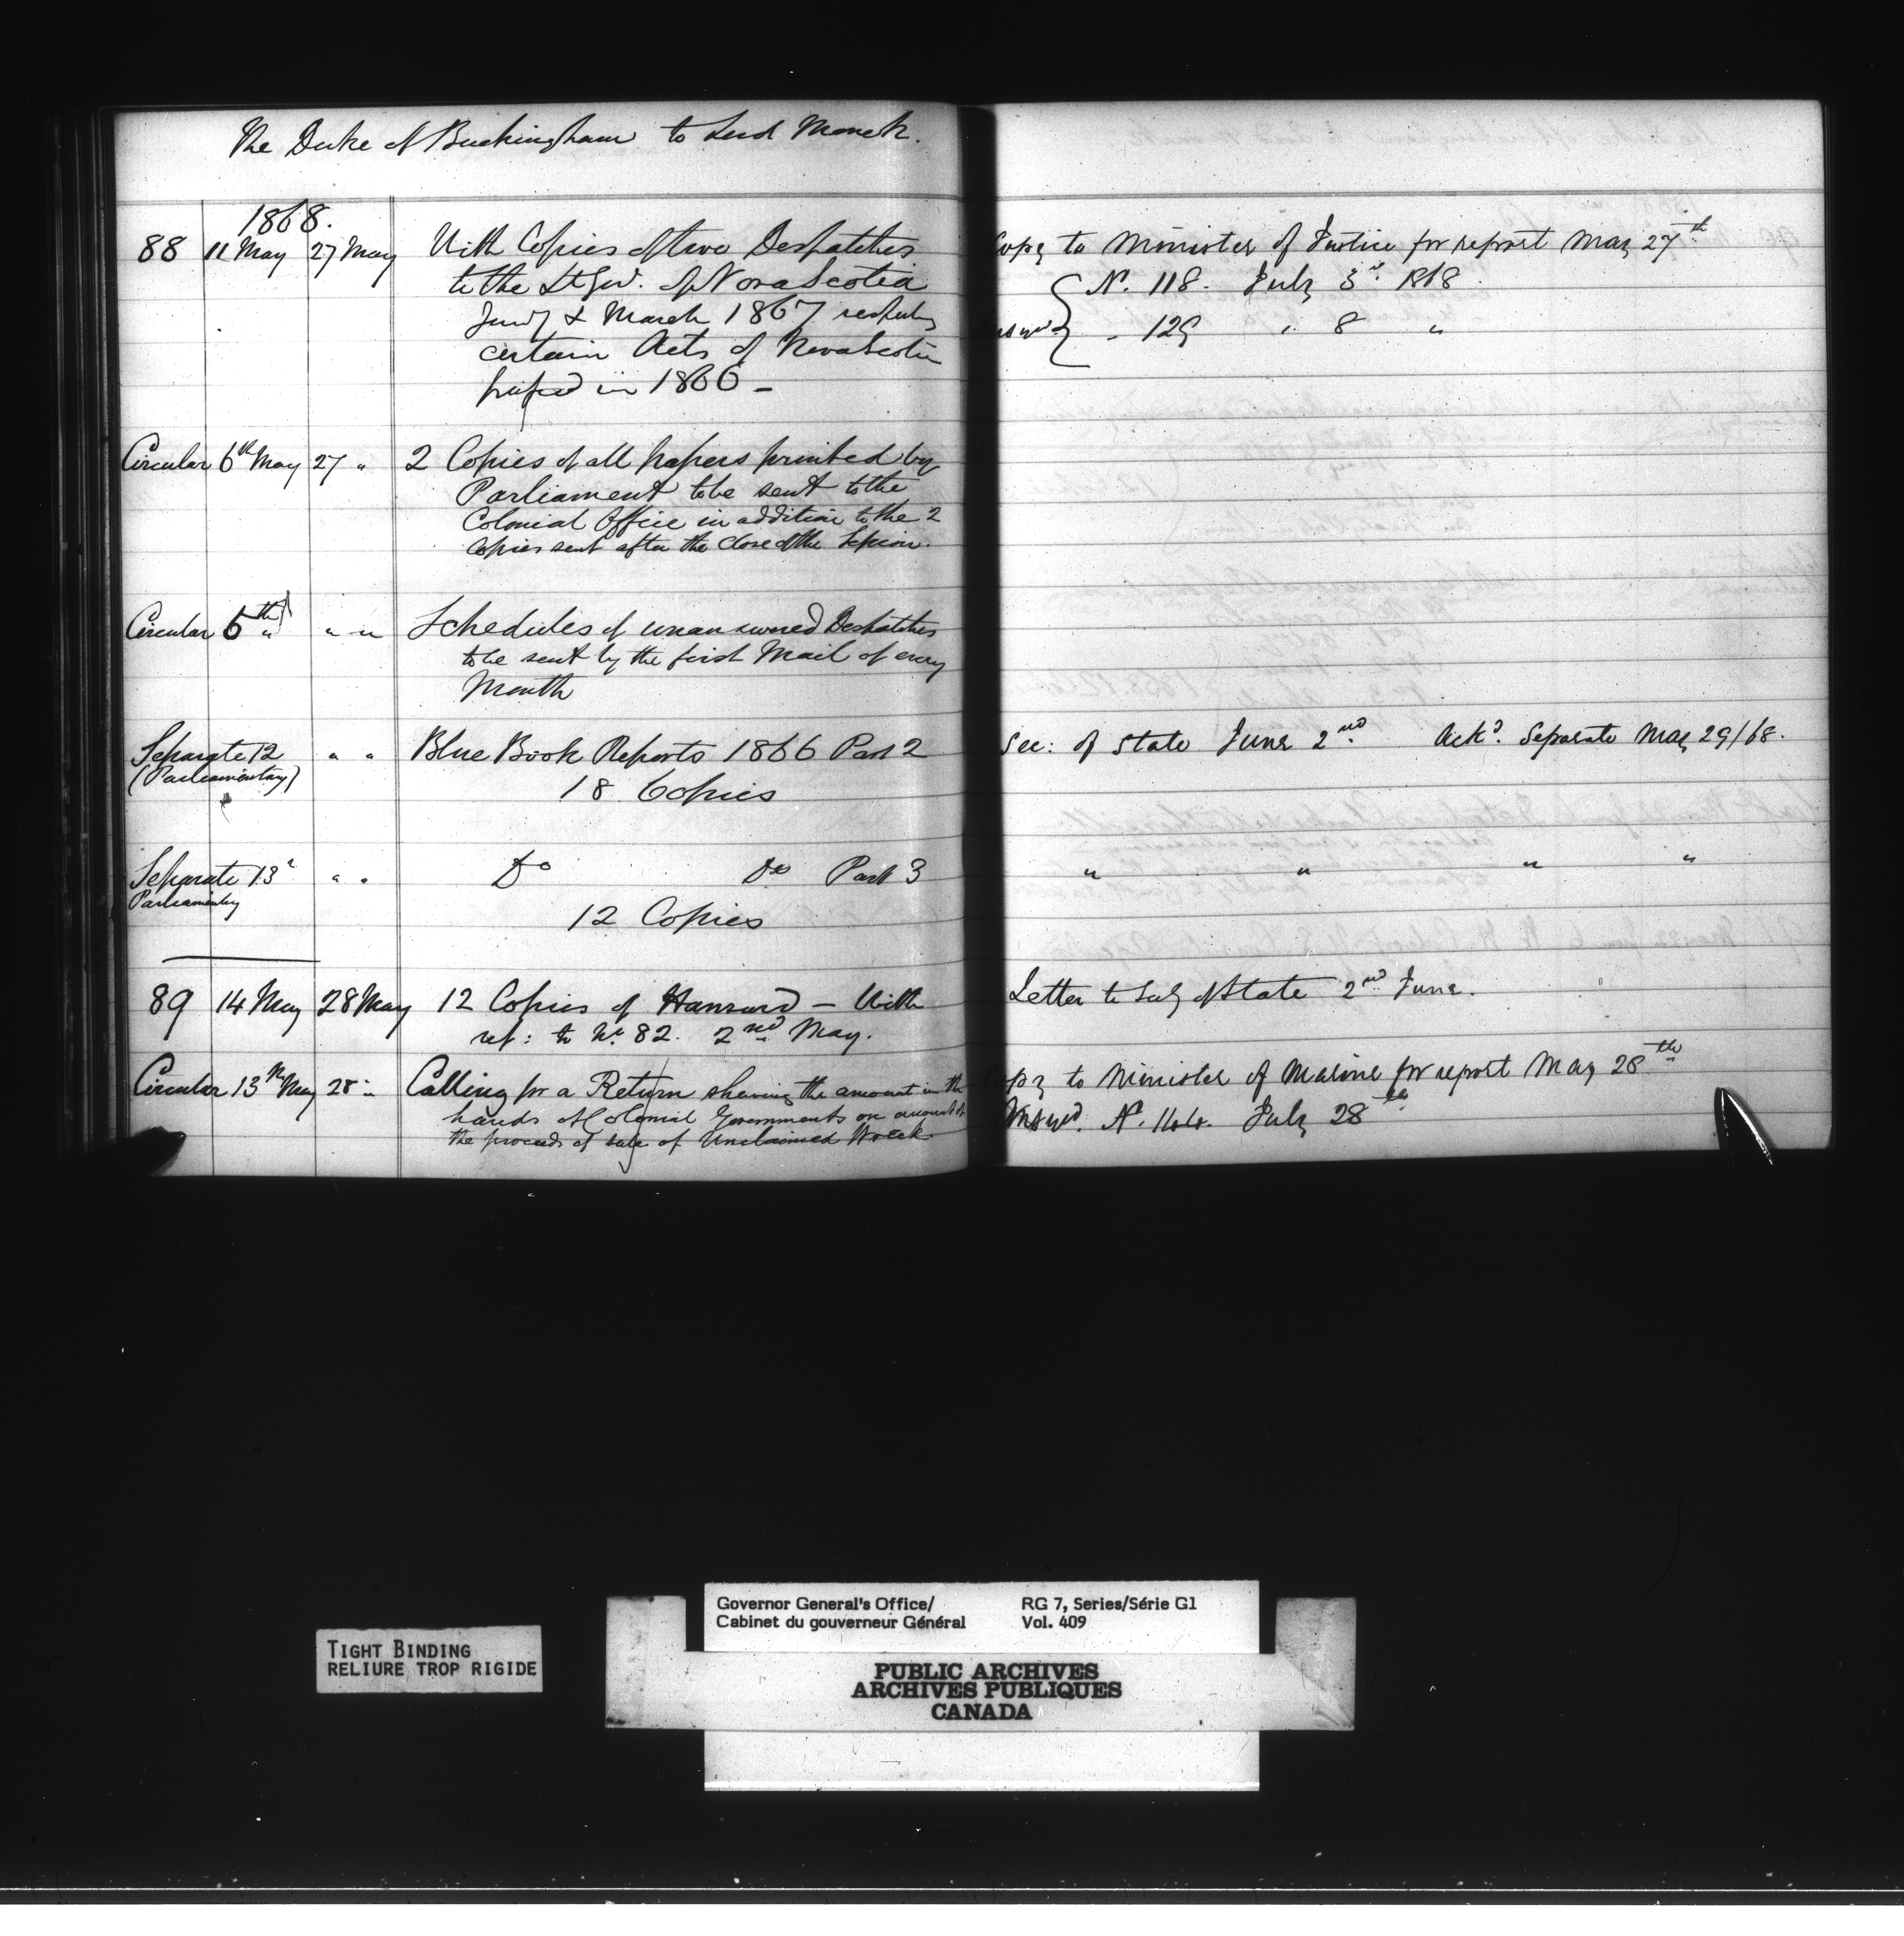 The Duke of Buckingham to Lord Monck.
1868.
88 11 May 27 May With Copies of two Despatches
to the Lt Gov. of Nova Scotia
Jany & March 1867 respectg
certain Acts of Nova Scotia
passed in 1866 –
Copy to Minister of Justice for report May 27th
N. 118. July 3rd 1868.
Answd - 129 " 8 "
Circular 6th May 27 " 2 Copies of all papers printed by
Parliament to be sent to the
Colonial Office in addition to the 2
Copies sent after the close of the Session.
Circular 6th " " " Schedules of unanswered Despatches
to be sent by the first Mail of every
Month
Separate 12 " " Blue Book Reports 1866 Part 2
(Parliamentary)
18 Copies
Sec: of State June 2nd Ackd. Separate May 29/68.
Separate 13 " " " Do Do Part 3
Parliamentary
12 Copies
" " " "
89 14 May 28 May 12 Copies of Hansard – With
ref: to No. 82. 2nd May.
Letter to Secy of State 2nd June.
Circular 13th May 28 " Calling for a Return shewing the amount in the
hands of Colonial Governments on account of
the proceeds of sale of Unclaimed Wreck.
Copy to Minister of Marine for report May 28th
Answd. N. 144. July 28th
Governor General's Office/
Cabinet du gouverneur Général
RG 7, Series/Série G1
Vol. 409
TIGHT BINDING
RELIURE TROP RIGIDE
PUBLIC ARCHIVES
ARCHIVES PUBLIQUES
CANADA